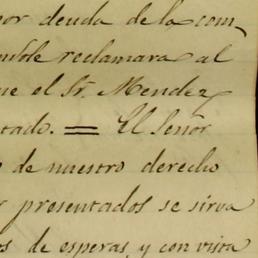 por deuda de la com
mible reclamara al
que el Sr. Mendez
tado. = El Señor
o de nuestro derecho
r presentados se sirva
os de esperas, y con vista